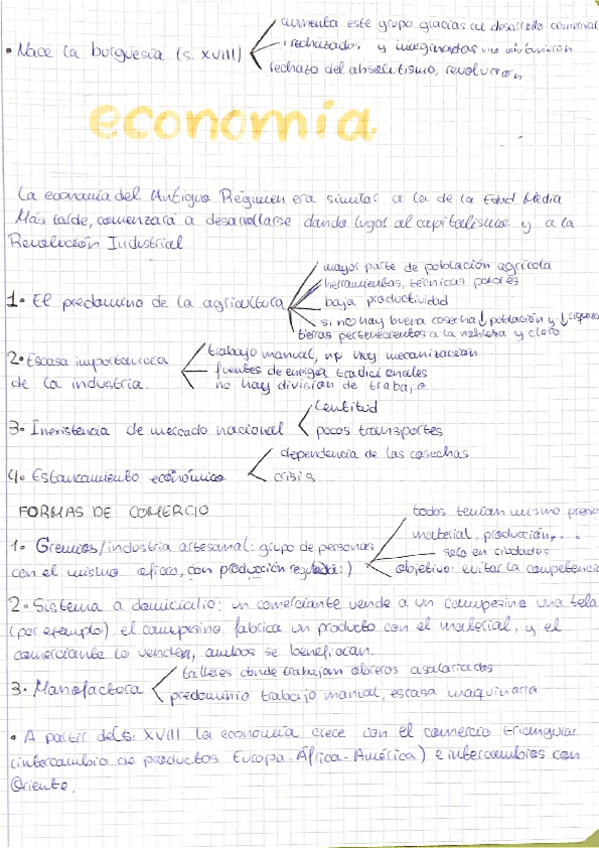 aumenta este grupo gracias al desarrollo comercial
• Nace la burguesía (s. XVIII)
rechazados y marginados
rechazo del absolutismo, revolución
economía
La economía del Antiguo Régimen era similar a la de la Edad Media
Más tarde, comenzará a desarrollarse dando lugar al capitalismo y a la
Revolución Industrial
mayor parte de población agrícola
herramientas, técnicas pobres
1. El predominio de la agricultura
baja productividad
si no hay buena cosecha ↓ población y ↓ riqueza
tierras pertenecientes a la nobleza y clero
trabajo manual, no hay mecanización
2. Escasa importancia
fuentes de energía tradicionales
de la industria
no hay división de trabajo
Lentitud
3. Inexistencia de mercado nacional
pocos transportes
dependencia de las cosechas
4. Estancamiento económico
crisis
FORMAS DE COMERCIO
todos tenían mismo precio
material, producción,...
1. Gremios/industria artesanal: grupo de personas
solo en ciudades
con el mismo oficio, con producción regulada:)
objetivo: evitar la competencia
2. Sistema a domicialio: un comerciante vende a un campesino una tela
(por ejemplo), el campesino fabrica un producto con el material, y el
comerciante lo vende, ambos se benefician.
talleres donde trabajan obreros asalariados
3. Manofactora
predominio trabajo manual, escasa maquinaria
• A partir del s. XVIII la economía crece con el comercio triangular
(intercambio de productos Europa-África-América) e intercambios con
Oriente.